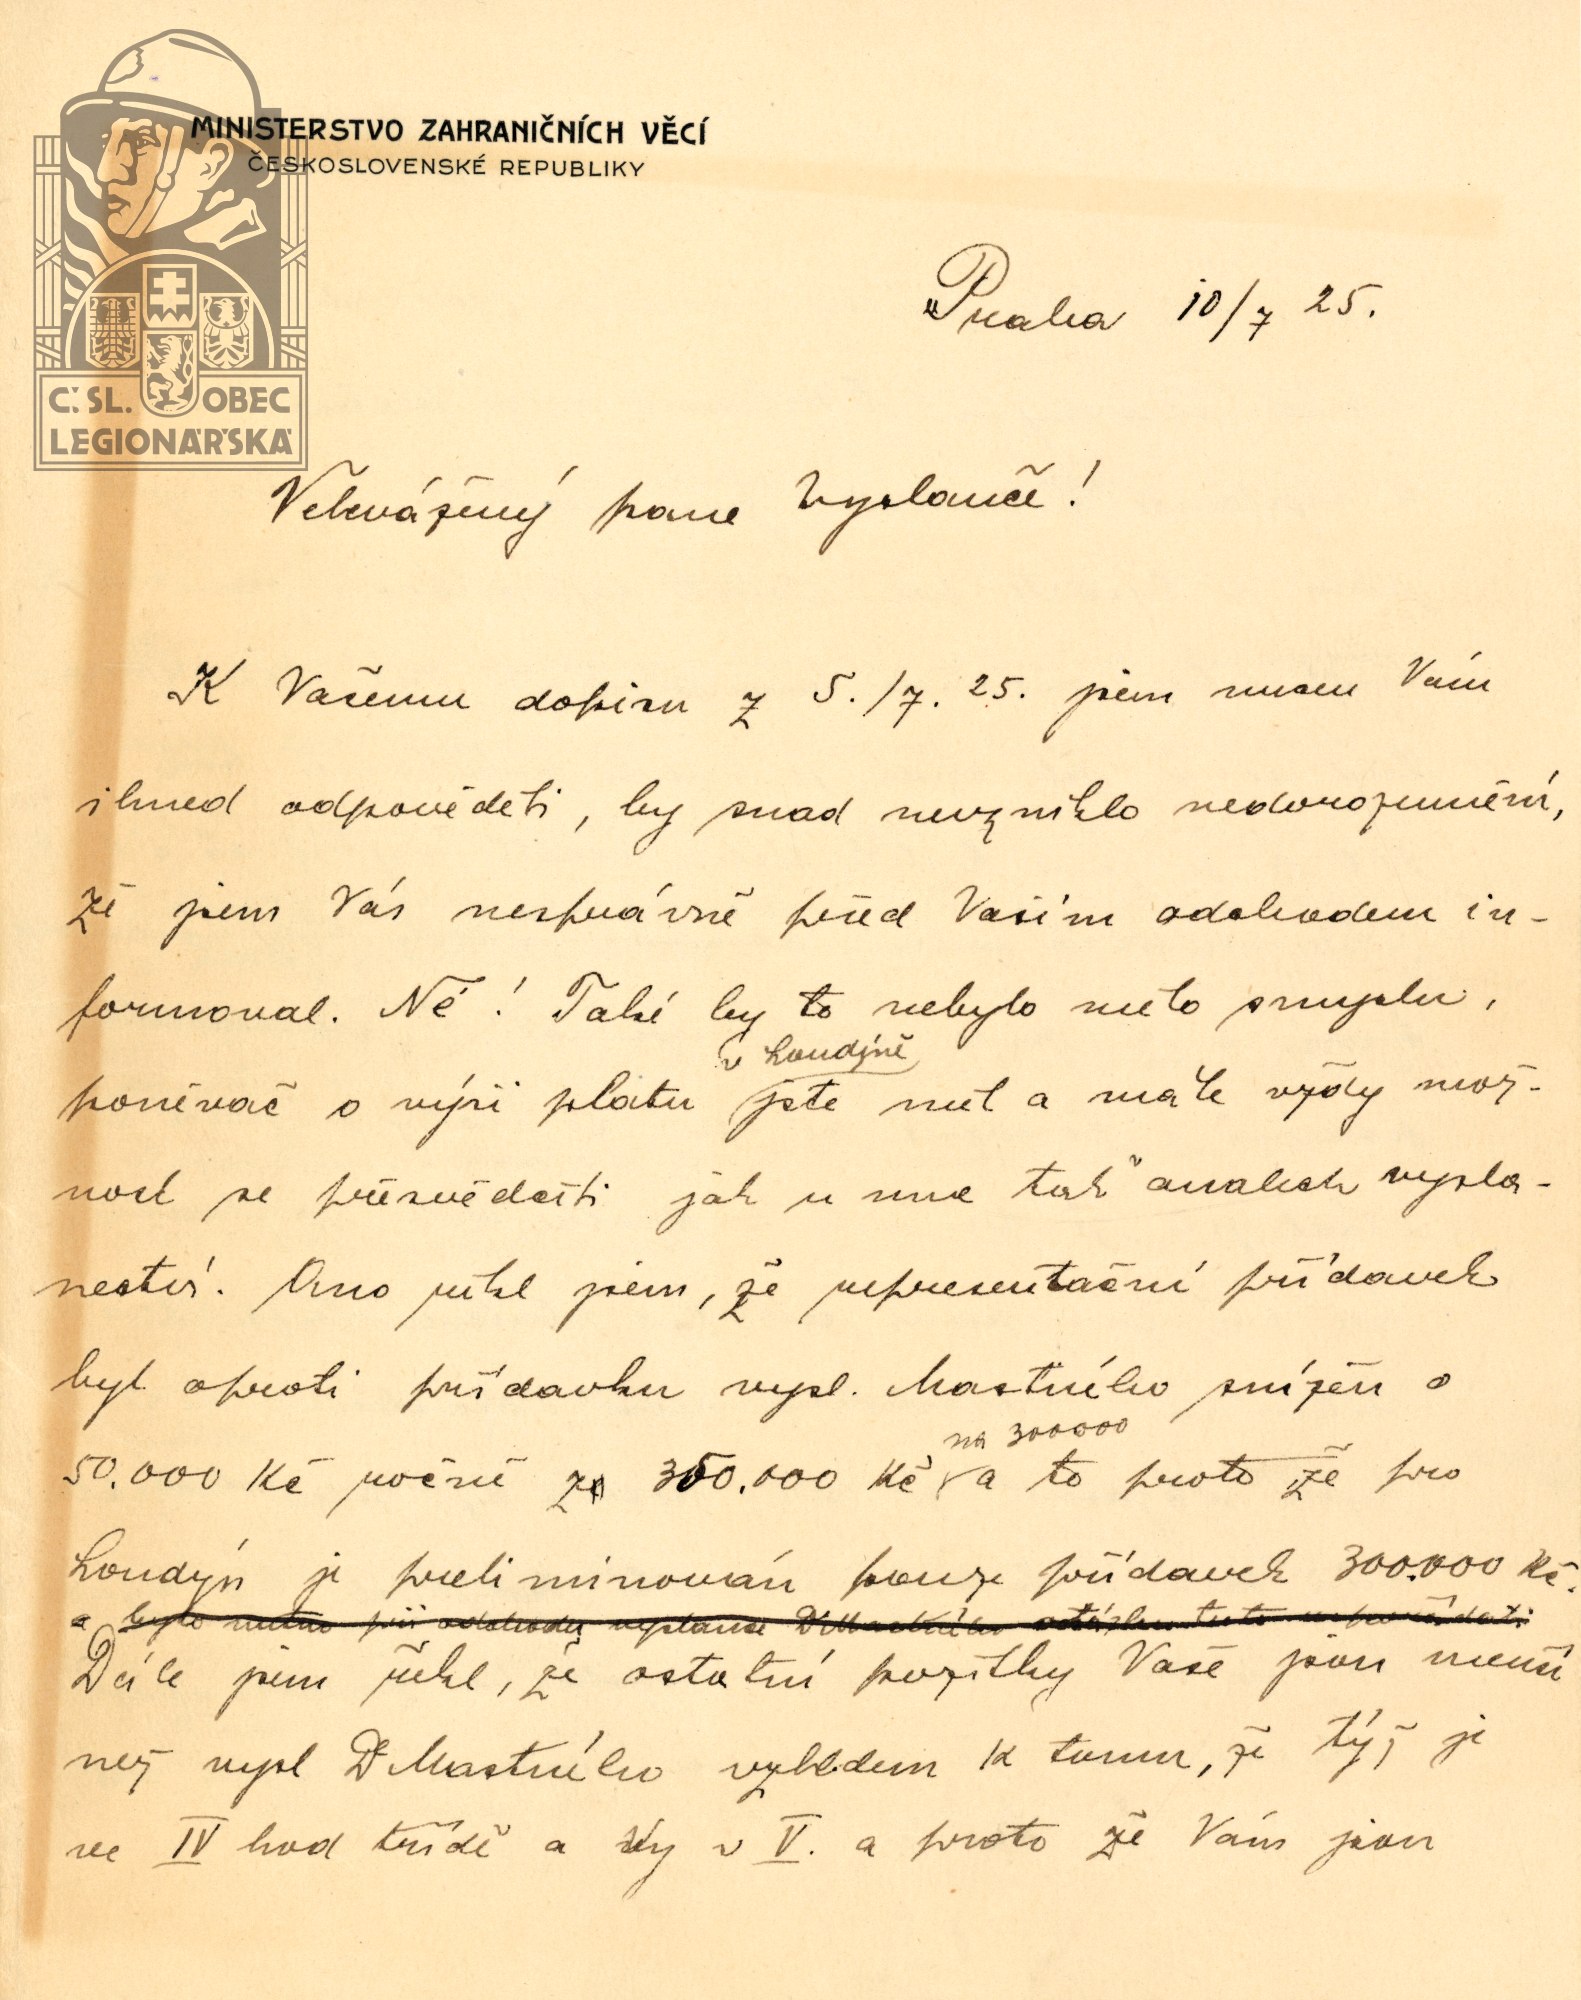 MINISTERSTVO ZAHRANIČNÍCH VĚCÍ
ČESKOSLOVENSKÉ REPUBLIKY
Č.SL. OBEC
LEGIONÁŘSKÁ
Praha 10/7 25.
Velevážený pane vyslanče!
K Vašemu dopisu z 5./7. 25. jsem nucen Vám
ihned odpověděti, by snad nevzniklo nedorozumění,
že jsem Vás nesprávně před Vaším odchodem in-
formoval. Né! Také by to nebylo mělo smyslu,
v Londýně
poněvač o výši platu jste měl a máte vždy mož-
nost se přesvědčiti jak u mne tak v aualech vysla-
nectví. Ano řekl jsem, že representační přídavek
byl oproti přídavku vysl. Mastného snížen o
na 300000
50.000 Kč ročně z 350.000 Kč a to proto že pro
Londýn je preliminován pouze přídavek 300.000 Kč.
a bylo nutno při odchodu vyslance Dr Mastného otázku tuto uspořádati
Dále jsem řekl, že ostatní požitky Vaše jsou menší
než vysl Dr Mastného vzhledem k tomu, že týž je
ve IV hod třídě a Vy v V. a proto že Vám jsou